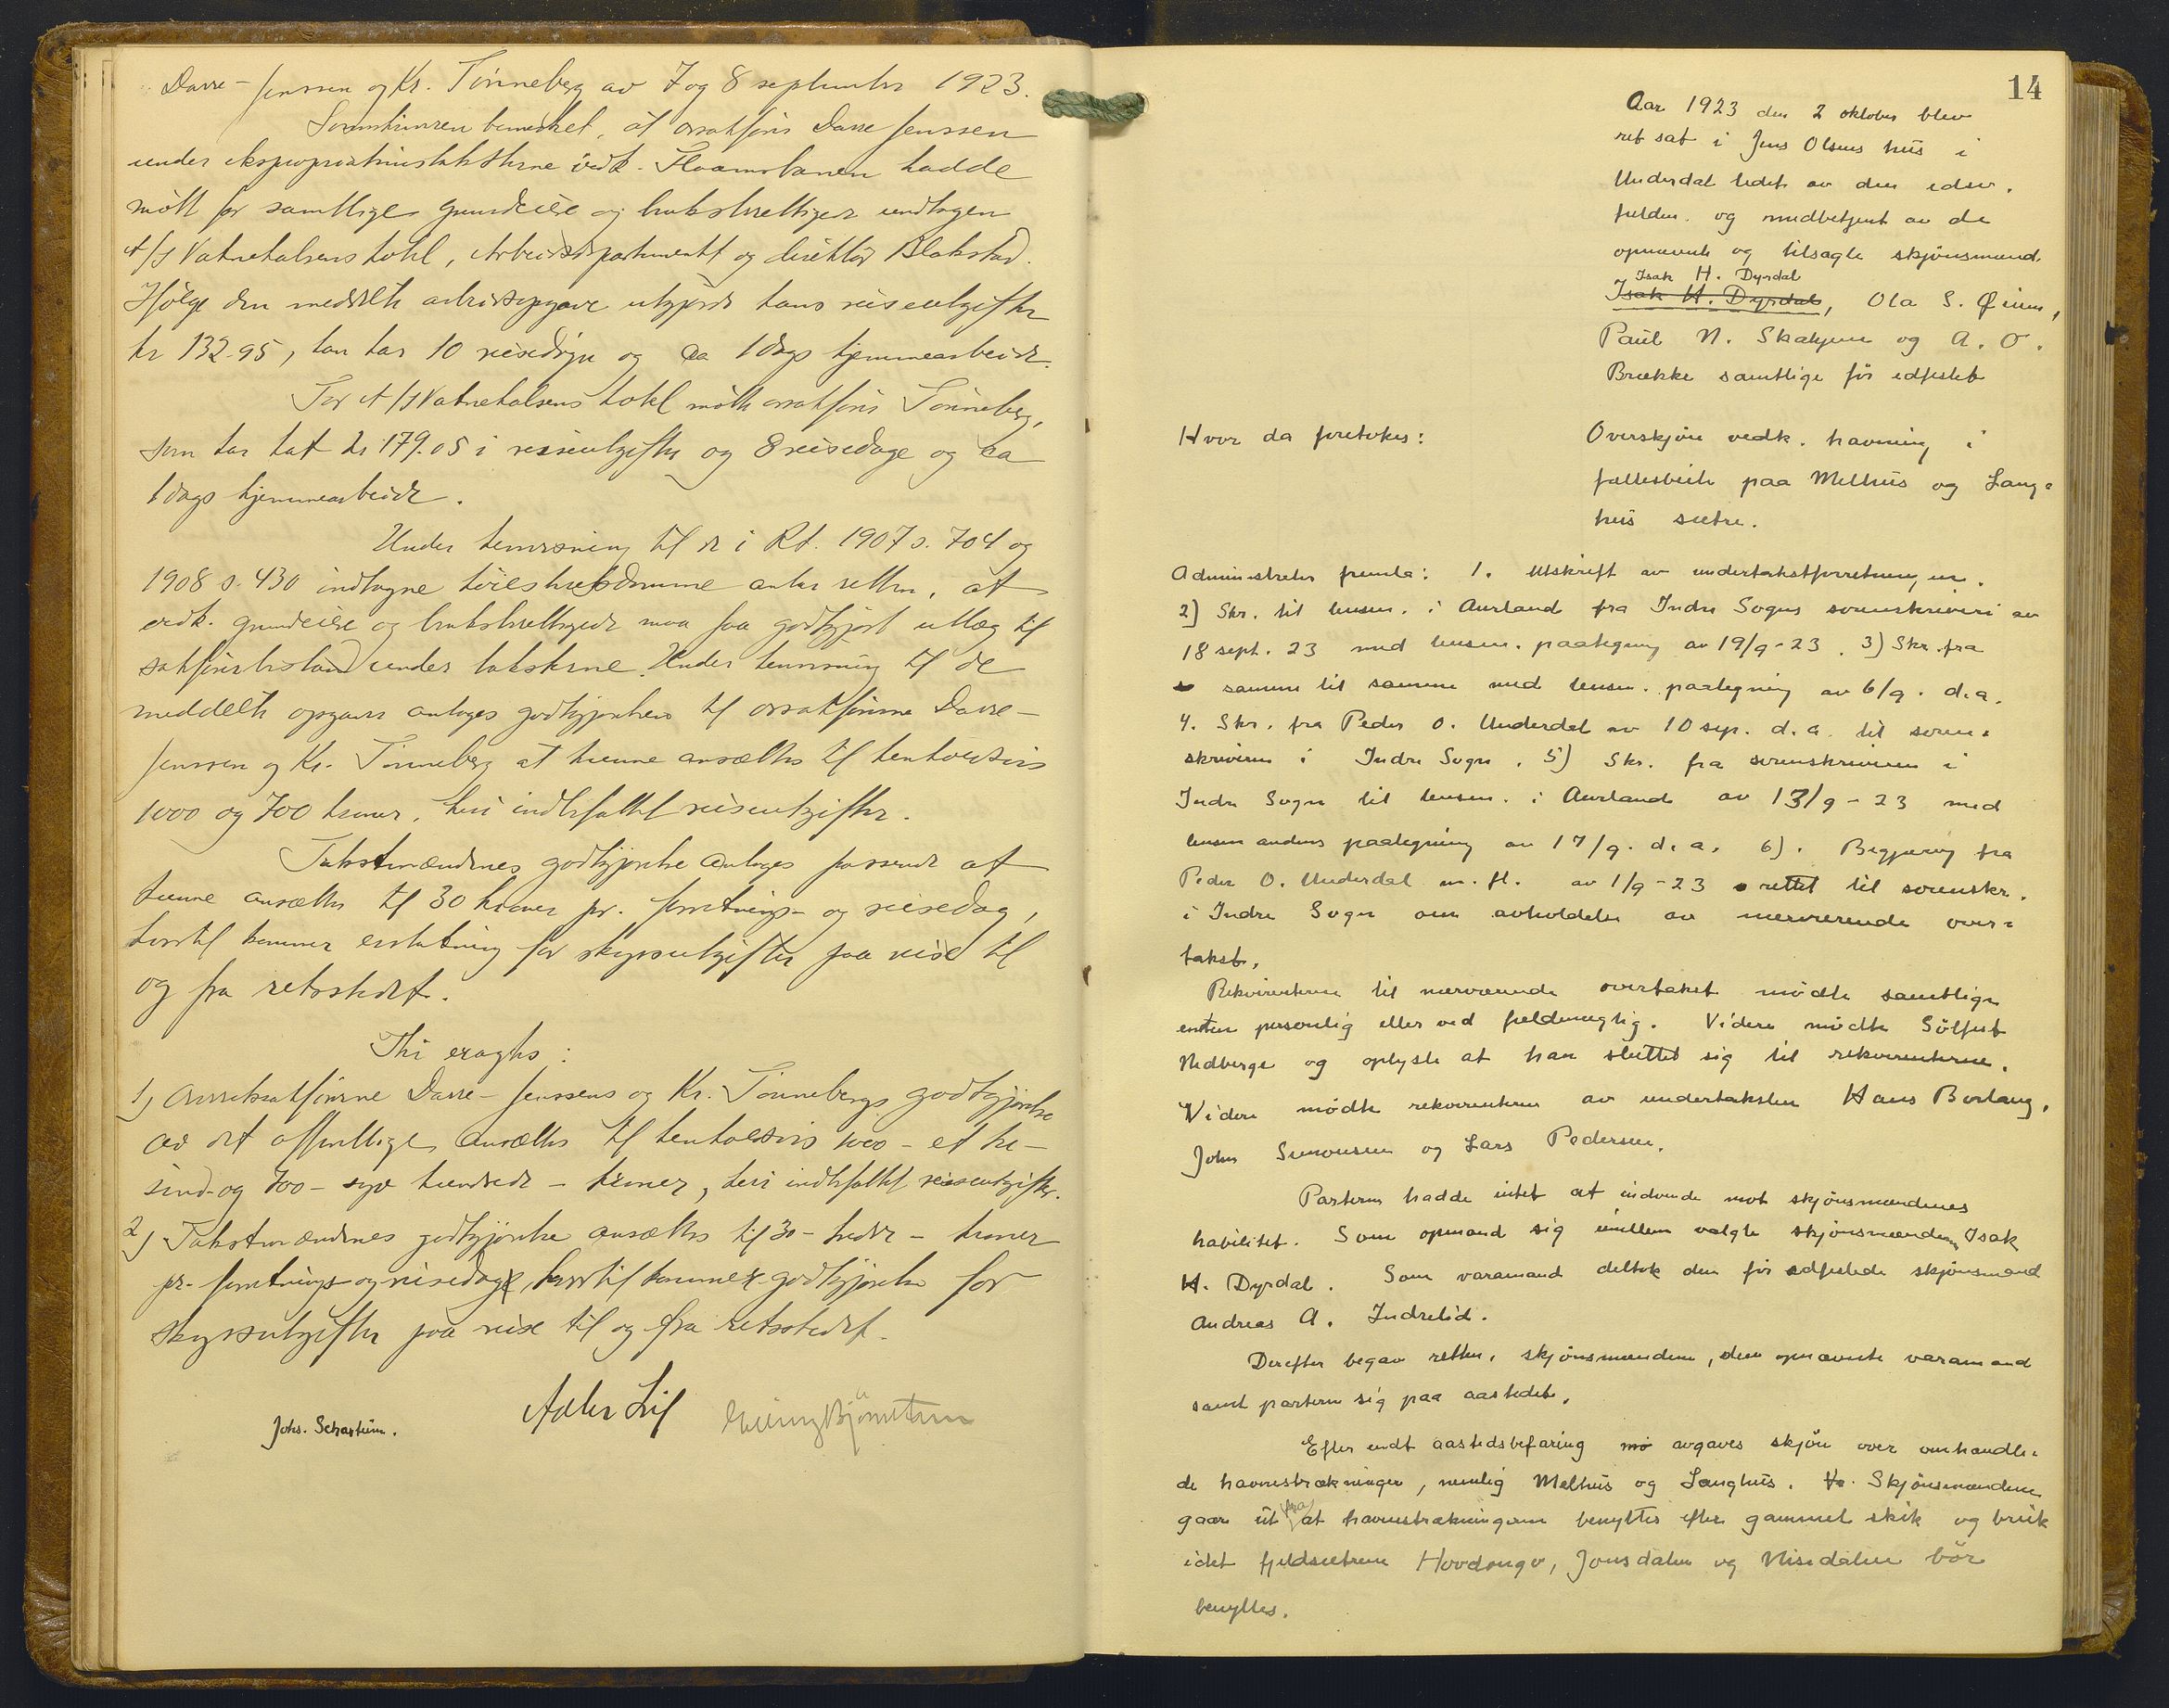 Darre-Jenssen og Kr. Tønneberg av 7 og 8 september 1923.
Sorenskriveren bemerket, at orsakfører Darre Jenssen
under ekspropriationstakstene vedk. Flaamsbanen hadde
møtt for samtlige grundeiere og bruksberettigede undtagen
A/S Vatnahalsens hotel, Arbeidsdepartementet og direktør Blakstad.
Ifølge den meddelte arbeidsopgave utgjorde hans reiseutgifter
kr 132.95, han har 10 reisedøgn og ca 1 dags hjemmearbeide.
For A/S Vatnahalsens hotel møtte orsakfører Tønneberg,
som har hat kr 179.05 i reiseutgifter og 8 reisedage og ca
1 dags hjemmearbeide.
Under henvisning til de i Rt. 1907 s. 704 og
1908 s. 430 indtagne høiesteretsdomme antar retten, at
vedk. grundeiere og bruksberettigede maa faa godtgjort utlæg til
sakførerbistand under takstene. Under henvisning til de
meddelte opgaver antages godtgjørelsen til orsakførerne Darre-
Jenssen og Kr. Tønneberg at kunne ansættes til henholdsvis
1000 og 700 kroner, heri indbefattet reiseutgifter.
Takstmændenes godtgjørelse antages passende at
kunne ansættes til 30 kroner pr. forretnings- og reisedag,
hertil kommer erstatning for skyssutgifter paa reise til
og fra retsstedet.
Thi eragtes:
1) Overretssakførerne Darre-Jenssens og Kr. Tønnebergs godtgjørelse
av det offentlige ansættes til henholdsvis 1000 - et tu-
sind- og 700 - syv hundrede - kroner, heri indbefattet reiseutgifter.
2) Takstmændenes godtgjørelse ansættes til 30 - tredve - kroner
pr. forretnings- og reisedag, hertil kommer godtgjørelse for
skyssutgifter paa reise til og fra retsstedet.
Johs. Schartum.
14
Aar 1923 den 2 oktober blev
ret sat i Jens Olsens hus i
Underdal ledet av den edsv.
fuldm. og medbetjent av de
opnævnte og tilsagte skjønsmænd
Isak H. Dyrdal
Isak H. Dyrdal, Ola S. Øium,
Paul N. Skahjem og A. O.
Brække samtlige før edfestet
Hvor da foretokes:
Overskjøn vedk. havning i
fællesbeite paa Melhus og Lang-
hus sætre.
Administrator fremla: 1. Utskrift av undertakstforretningen.
2) Skr. til lensm. i Aurland fra Indre Sogns sorenskriveri av
18 sept. 23 med lensm. paategning av 19/9-23. 3) Skr. fra
samme til samme med lensm. paategning av 6/9. d.a.
4. Skr. fra Peder O. Underdal av 10 sep. d.a. til soren-
skriveren i Indre Sogn. 5) Skr. fra sorenskriveren i
Indre Sogn til lensm. i Aurland av 13/9-23 med
lensmandens paategning av 17/9. d.a. 6). Begjæring fra
Peder O. Underdal m.fl. av 1/9-23 rettet til sorenskr.
i Indre Sogn om avholdelse av nærværende over-
takst.
Rekvirentene til nærværende overtakst mødte samtlige
enten personlig eller ved fuldmægtig. Videre mødte Sølfest
Nedberge og oplyste at han sluttet sig til rekvirentene.
Videre mødte rekvirentene av undertaksten Hans Borlaug,
John Simonsen og Lars Pedersen.
Partene hadde intet at indvende mot skjønsmændenes
habilitet. Som opmand sig imellem valgte skjønsmændene Isak
H. Dyrdal. Som varamand deltok den før edfestede skjønsmand
Andreas A. Indrelid.
Derefter begav retten, skjønsmændene, den opnævnte varamand
samt partene sig paa aastedet.
Efter endt aastedsbefaring avgaves skjøn over omhandle-
de havnestrækninger, nemlig Melhus og Langhus. Skjønsmændene
gaar ut fra at havnestrækningerne benyttes efter gammel skik og bruk
idet fjeldsætrene Hovdongo, Jonsdalen og Nisedalen bør
benyttes.